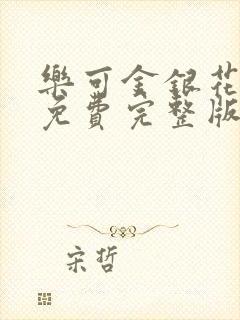 樂可金銀花
免費完整版
宋哲